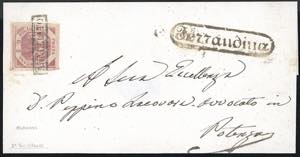 Ferrandina
A Sua Eccellenza
D. Peppino Lacovara Avvocato in
Potenza